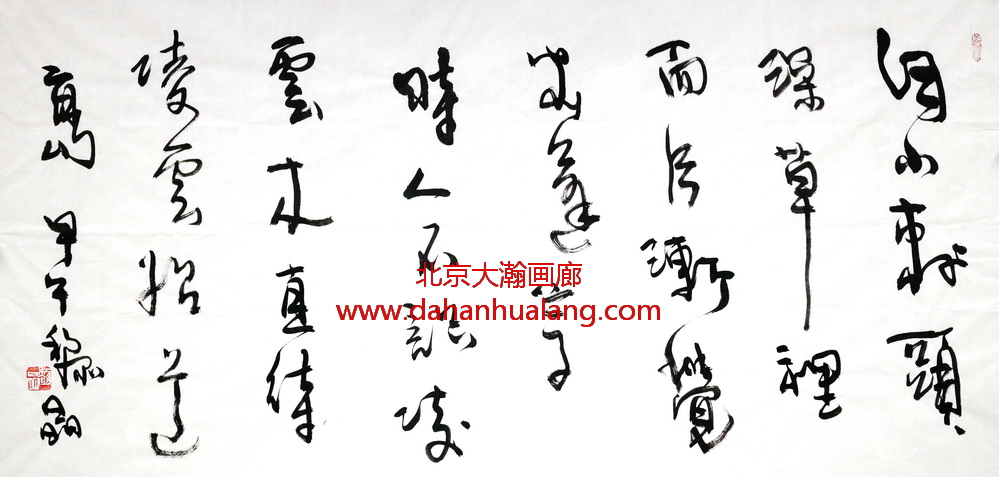 自小刺頭
深草裡
而今漸覺
出蓬蒿
時人不識凌
雲木直待
凌雲始道
高 甲午
北京大瀚画廊
www.dahanhualang.com